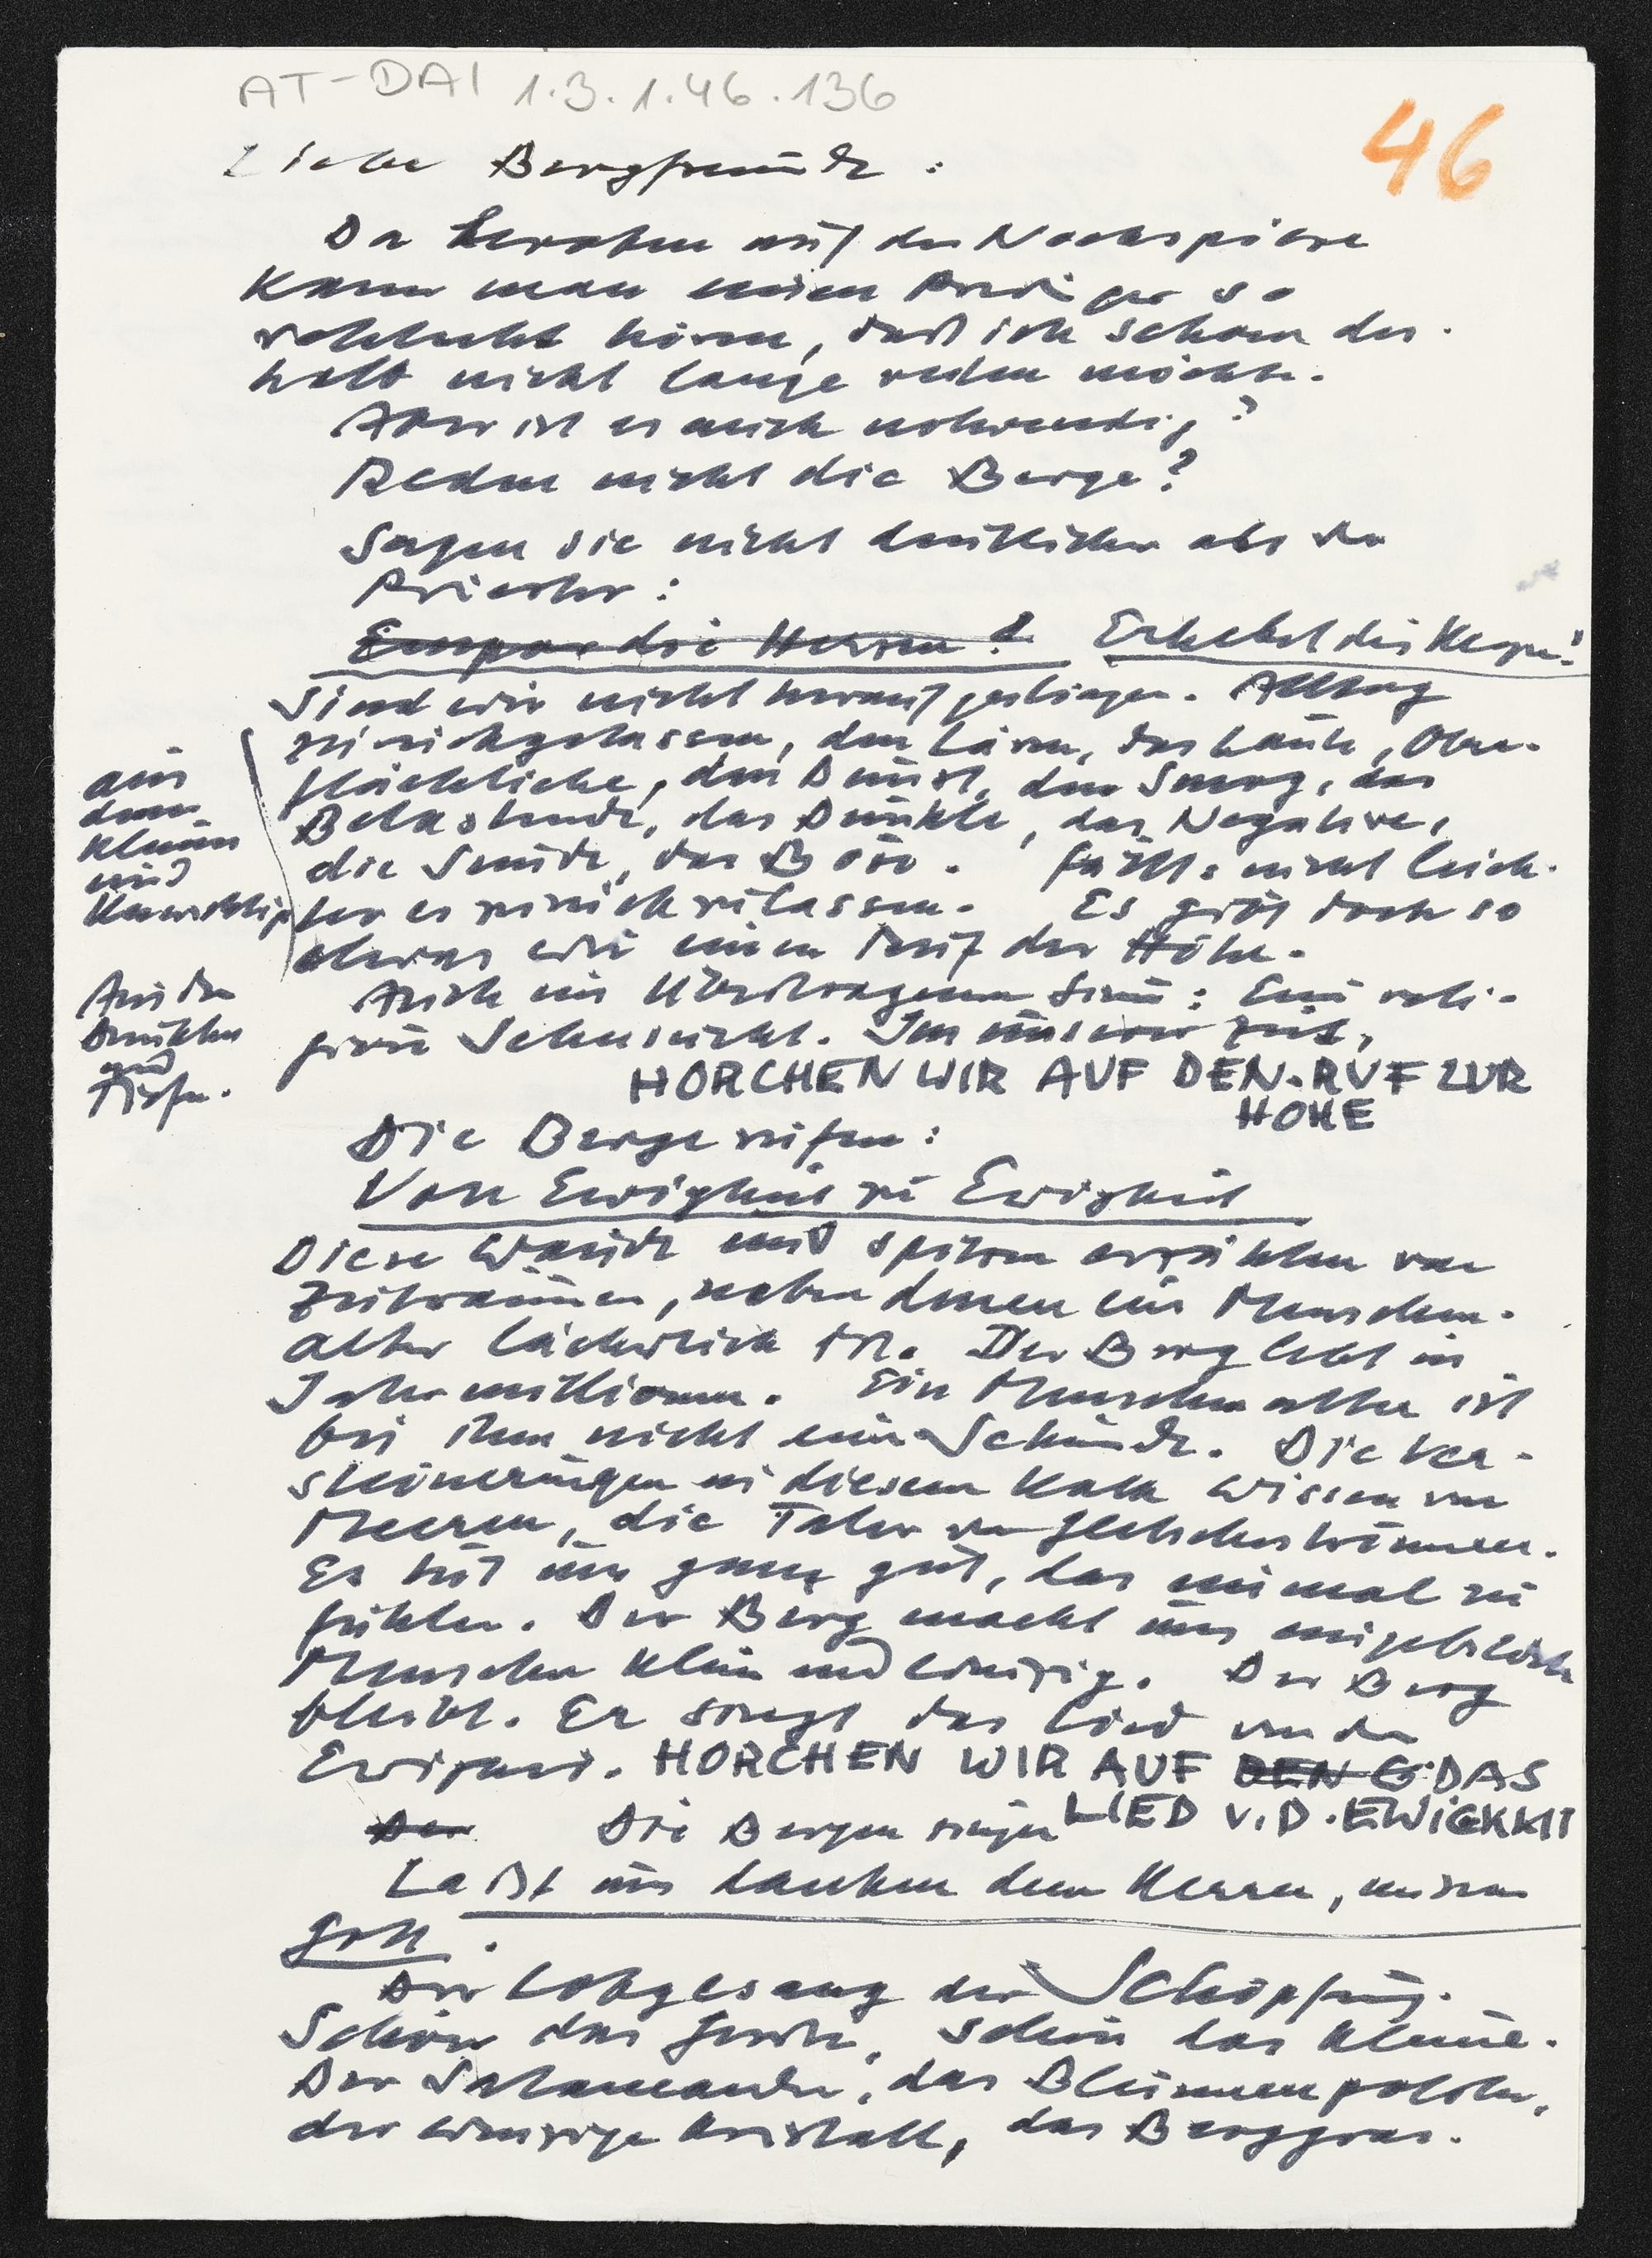 AT-DAI 1.3.1.46.136
46
Liebe Bergfreunde :
Da heroben auf der Nockspitze
kann man einen Prediger so
schlecht hören, daß ich schon des-
halb nicht lange reden möchte.
Aber ist es auch notwendig?
Reden nicht die Berge?
Sagen sie nicht deutlicher als der
Priester :
Empor die Herzen! Erhebet die Herzen!
Sind wir nicht heraufgestiegen. Alltag
zurückgelassen, den Lärm, das Laute, Ober-
flächliche, den Dunst, den Smog, das
Belastende, das Dunkle, das Negative,
die Sünde, das Böse. Fällts nicht leich-
ter es zurückzulassen. Es gibt doch so
etwas wie einen Ruf der Höhe.
aus
dem
Kleinen
und
Unwichtigen
Auch im übertragenen Sinn : Eine reli-
giöse Sehnsucht. In unserer Zeit,
Aus dem
Dunklen
und
Tiefen.
HORCHEN WIR AUF DEN RUF ZUR
HÖHE
Die Berge rufen :
Von Ewigkeit zu Ewigkeit
Diese Wände und Spitzen erzählen von
Zeiträumen, neben denen ein Menschen-
alter lächerlich ist. Der Berg lebt in
Jahrmillionen. Ein Menschenalter ist
bei ihm nicht eine Sekunde. Die Ver-
steinerungen in diesem Kalk wissen von
Meeren, die Täler von Gletscherströmen.
Es tut uns ganz gut, das einmal zu
fühlen. Der Berg macht uns eingebildete
Menschen klein und winzig. Der Berg
bleibt. Er singt das Lied von der
Ewigkeit. HORCHEN WIR AUF DEN G DAS
LIED V. D. EWIGKEIT
Der Die Bergen singen
Laßt uns danken dem Herrn, unserm
Gott.
Der Lobgesang der Schöpfung.
Schön das Große, schön das Kleine.
Der Salamander, das Blumenpolster,
der winzige Kristall, das Berggras.